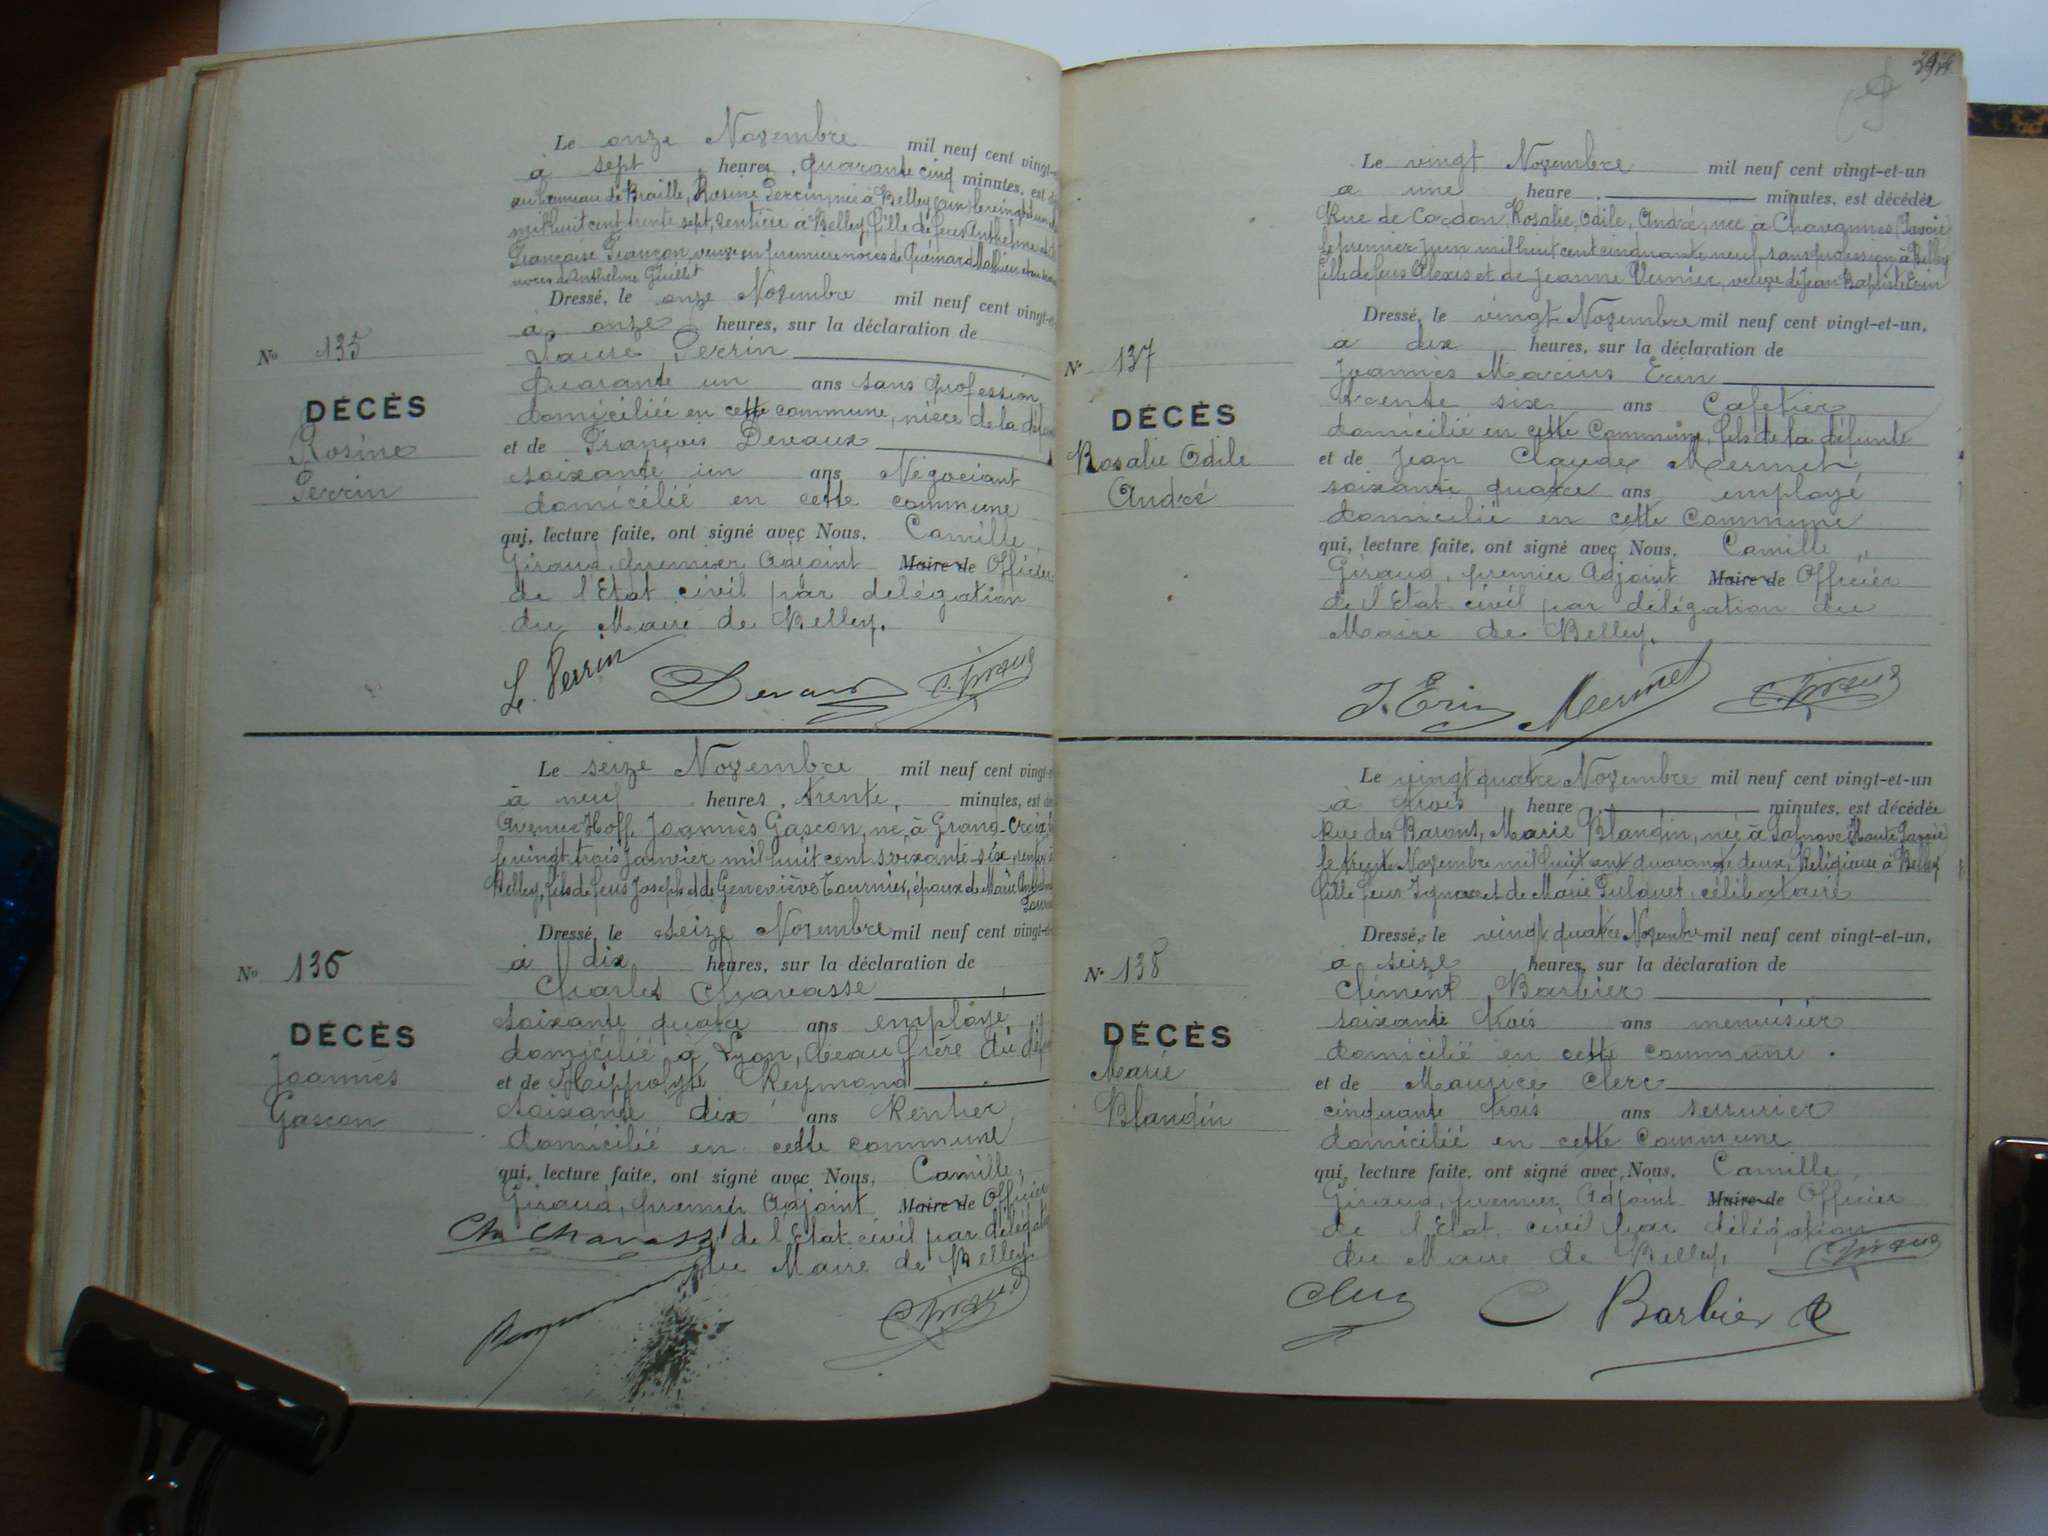 Le onze Novembre mil neuf cent vingt-
à sept heures, quarante cinq minutes, est
au hameau de Braille, Rosine Perrin, née à Belley (Ain) le vingt
mil huit cent trente sept, rentière à Belley, fille de feus Anthelme et
Françoise Françon, veuve en première noces de Quinard Mathieu et en
noces de Anthelme Guillet
Dressé, le onze Novembre mil neuf cent vingt-e
à onze heures, sur la déclaration de
Laure Perrin
Quarante un ans sans profession
domiciliée en cette commune, nièce de la
et de François Devaux
soixante un ans Négociant
domicilié en cette commune
qui, lecture faite, ont signé avec Nous, Camille
Giraud, premier Adjoint Maire de Officier
de l'Etat civil par délégation
du Maire de Belley.
No 135
DÉCÈS
Rosine
Perrin
L. Perrin Devaux C. Giraud
Le seize Novembre mil neuf cent vingt-e
à neuf heures, trente, minutes, est dé
Avenue Hoff, Joannès Gascon, né à Grand-Croix
le vingt trois Janvier mil huit cent soixante six, rentier à
Belley, fils de feus Joseph et de Geneviève Tournier, époux de Marie
Dressé, le seize Novembre mil neuf cent vingt-e
à dix heures, sur la déclaration de
Charles Chavasse
soixante quatre ans employé
domicilié à Lyon, beau frère du
et de Hippolyte Reymond
soixante dix ans Rentier
domicilié en cette commune
qui, lecture faite, ont signé avec Nous, Camille
Giraud, premier Adjoint Maire de Officier
de l'Etat civil par délégat
du Maire de Belley.
No 136
DÉCÈS
Joannès
Gascon
Ch Chavasse
C. Giraud
Le vingt Novembre mil neuf cent vingt-et-un
à une heure minutes, est décédée
Rue de Cordon, Rosalie, Odile, André, née à (Savoie)
le premier Juin mil huit cent cinquante neuf, sans profession à Belley
fille de feus Alexis et de Jeanne Vernier, veuve de Jean Baptiste Erin
Dressé, le vingt Novembre mil neuf cent vingt-et-un,
à dix heures, sur la déclaration de
Joannès Marius Erin
trente six ans Cafetier
domicilié en cette Commune, fils de la défunte
et de Jean Claude Mermet
soixante quatre ans employé
domicilié en cette Commune
qui, lecture faite, ont signé avec Nous, Camille
Giraud, premier Adjoint Maire de Officier
de l'Etat civil par délégation du
Maire de Belley.
No 137
DÉCÈS
Rosalie Odile
André
J. Erin Mermet C. Giraud
Le vingt quatre Novembre mil neuf cent vingt-et-un
à trois heure minutes, est décédée
Rue des Barons, Marie Blandin, née à (Haute Savoie)
le trente Novembre mil huit cent quarante deux, Religieuse à Belley
fille feus Ignace et de Marie Pulquet, célibataire
Dressé, le vingt quatre Novembre mil neuf cent vingt-et-un,
à seize heures, sur la déclaration de
Clément Barbier
soixante trois ans menuisier
domicilié en cette commune.
et de Maurice Clerc
cinquante trois ans serrurier
domicilié en cette Commune
qui, lecture faite, ont signé avec Nous, Camille
Giraud, premier Adjoint Maire de Officier
de l'Etat civil par délégation
du Maire de Belley. C. Giraud
No 138
DÉCÈS
Marie
Blandin
Clerc C Barbier